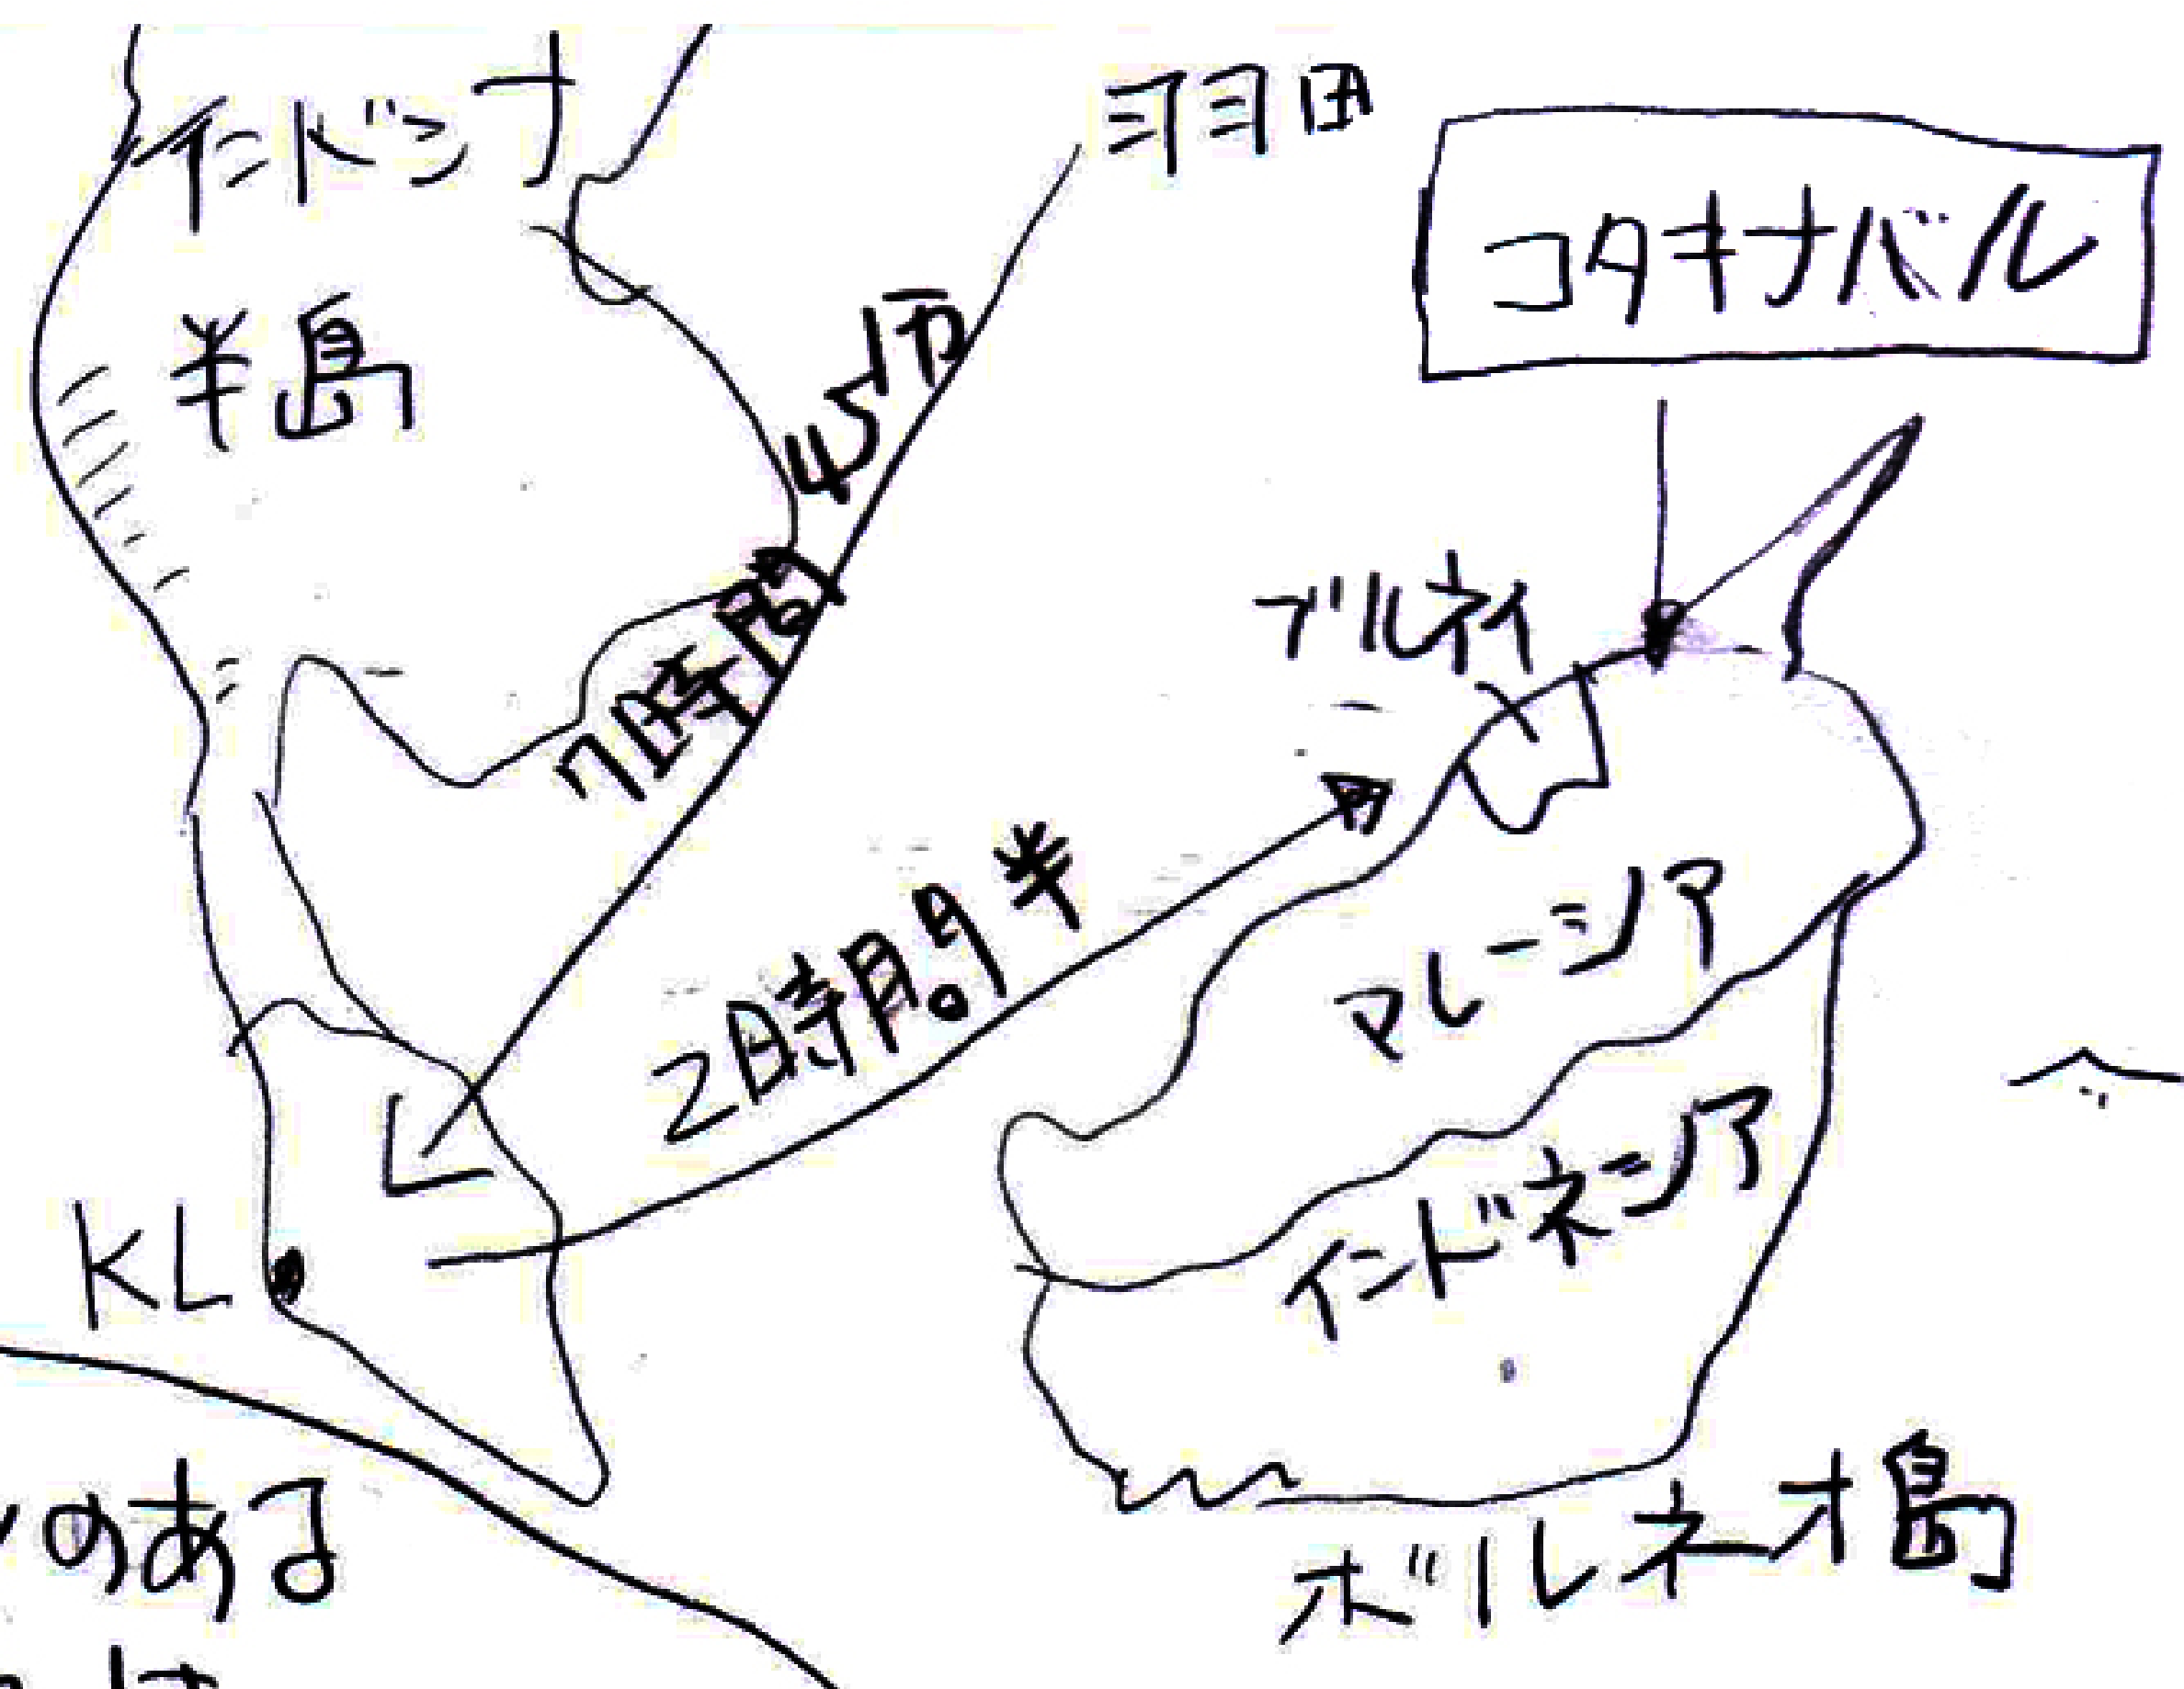 インドシナ
半島
羽田
コタキナバル
7時間45分
ブルネイ
2時間半
マレーシア
インドネシア
KL
ボルネオ島
のある